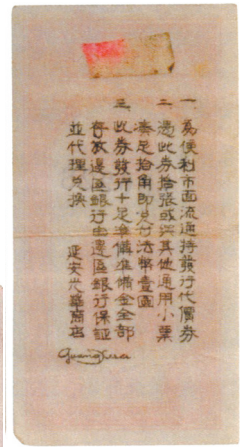 一、為便利市面流通特發行代價券
二、憑此券拾張或與其他通用小票
湊足拾角即兌付法幣壹圓
三、此券發行十足準備準備金全部
存放邊區銀行由邊區銀行保証
並代理兌換　延安光華商店
Guanghua